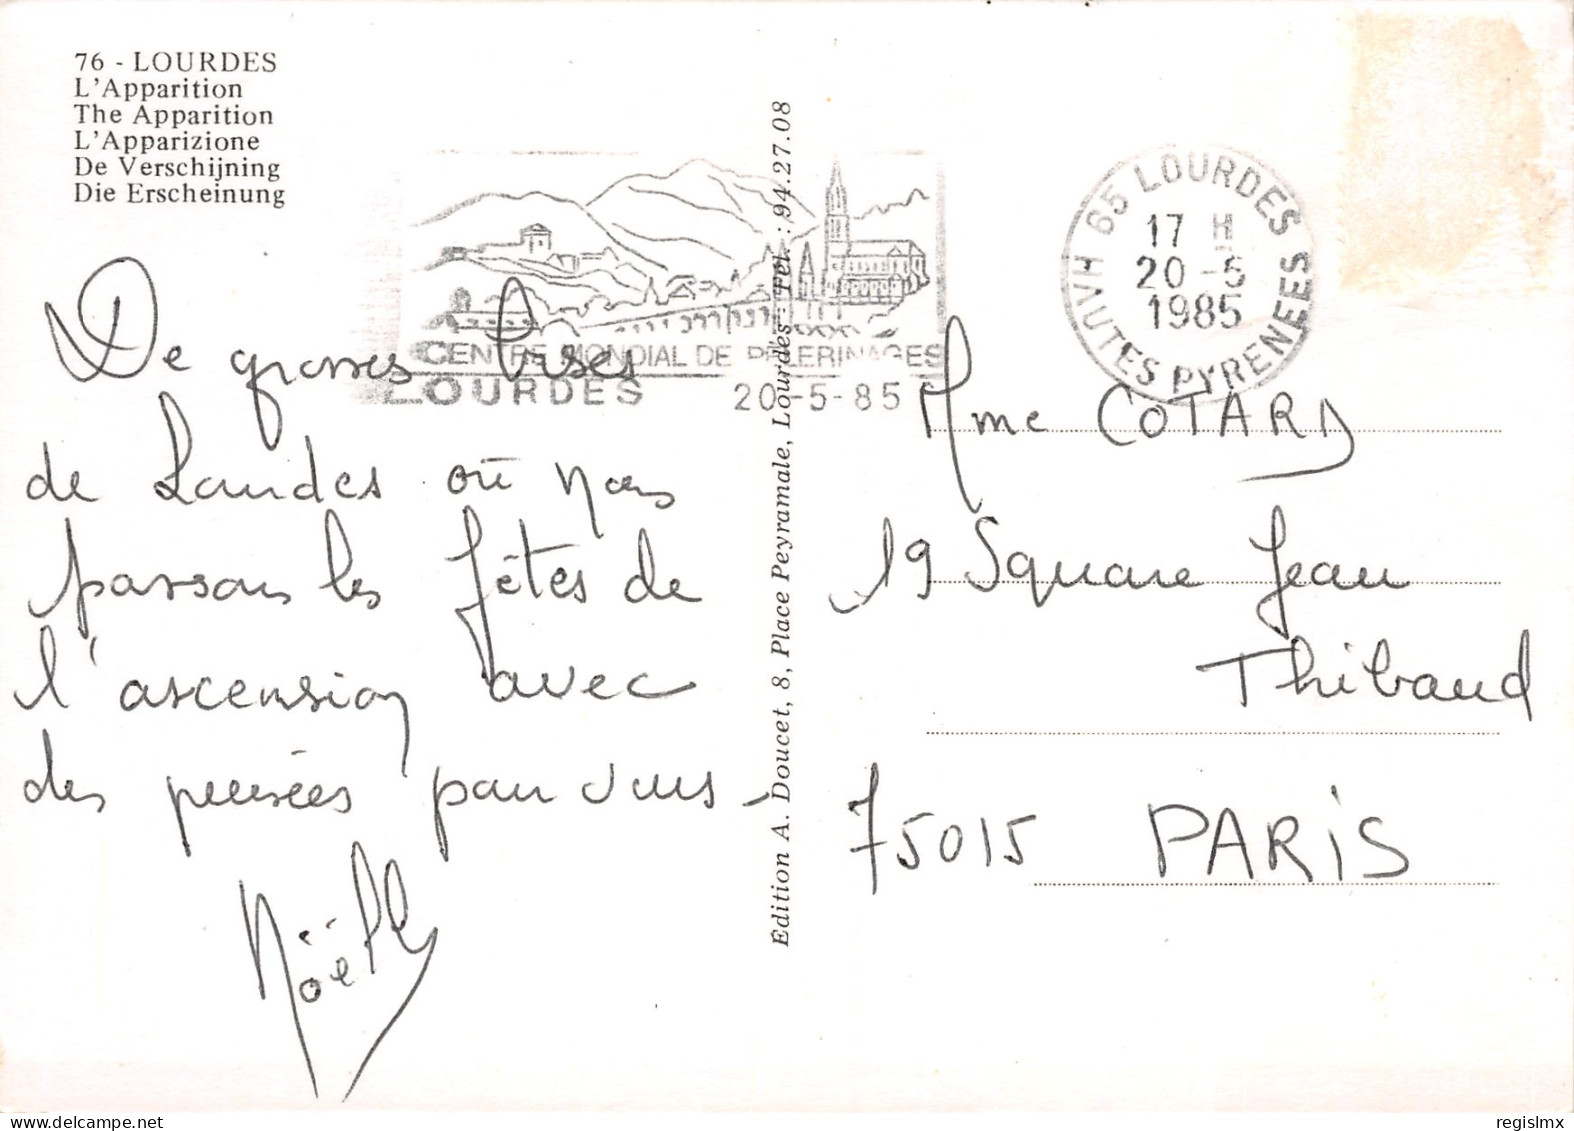 76 - LOURDES
L'Apparition
The Apparition
L'Apparizione
De Verschijning
Die Erscheinung
CENTRE MONDIAL DE PELERINAGES
LOURDES 20-5-85
65 LOURDES
17 H
20 -5
1985
HAUTES PYRENEES
De grosses bises
de Lourdes où nous
passons les fêtes de
l'ascension avec
des pensées pour vous -
Noëlly
Édition A. Doucet, 8, Place Peyramale, Lourdes - Tél. : 94.27.08
Mme COTARD
19 Square Jean
Thibaud
75015 PARIS
regislmx